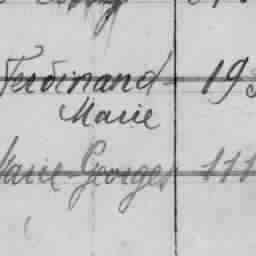 Ferdinand 19
Marie
Marie-Georges 111